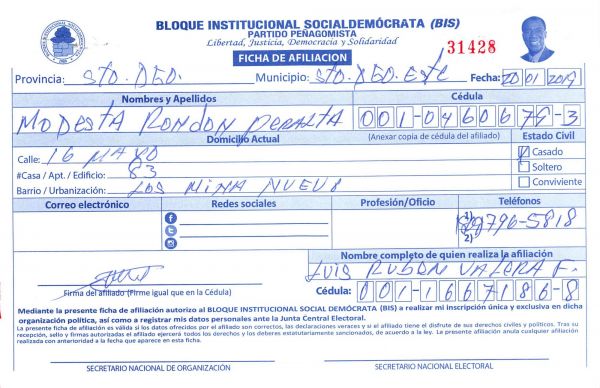 BLOQUE INSTITUCIONAL SOCIALDEMÓCRATA (BIS)
PARTIDO PEÑAGOMISTA
Libertad, Justicia, Democracia y Solidaridad
FICHA DE AFILIACION
31428
Provincia: STO. DGO. Municipio: STO. DGO. ESTE Fecha: 20 01 2019
Nombres y Apellidos Cédula
MODESTA RONDON PERALTA 001-0460679-3
Domicilio Actual (Anexar copia de cédula del afiliado) Estado Civil
Calle: 16 MAYO Casado
#Casa / Apt. / Edificio: 83 Soltero
Barrio / Urbanización: LOS MINA NUEVO Conviviente
Correo electrónico Redes sociales Profesión/Oficio Teléfonos
1) 796-5818
2)
Nombre completo de quien realiza la afiliación
LUIS RUBON VALERA F.
Firma del afiliado (Firme igual que en la Cédula) Cédula: 001-1667186-8
Mediante la presente ficha de afiliación autorizo al BLOQUE INSTITUCIONAL SOCIAL DEMÓCRATA (BIS) a realizar mi inscripción única y exclusiva en dicha
organización política, así como a registrar mis datos personales ante la Junta Central Electoral.
La presente ficha de afiliación es válida si los datos ofrecidos por el afiliado son correctos, las declaraciones veraces y si el afiliado tiene el disfrute de sus derechos civiles y políticos. Tras su
recepción, sello y firmas autorizadas el afiliado ejercerá todos los derechos y los deberes estatutariamente sancionados, de acuerdo a la ley. La presente afiliación anula cualquier afiliación
realizada con anterioridad a la fecha que aparece en esta ficha.
SECRETARIO NACIONAL DE ORGANIZACIÓN SECRETARIO NACIONAL ELECTORAL